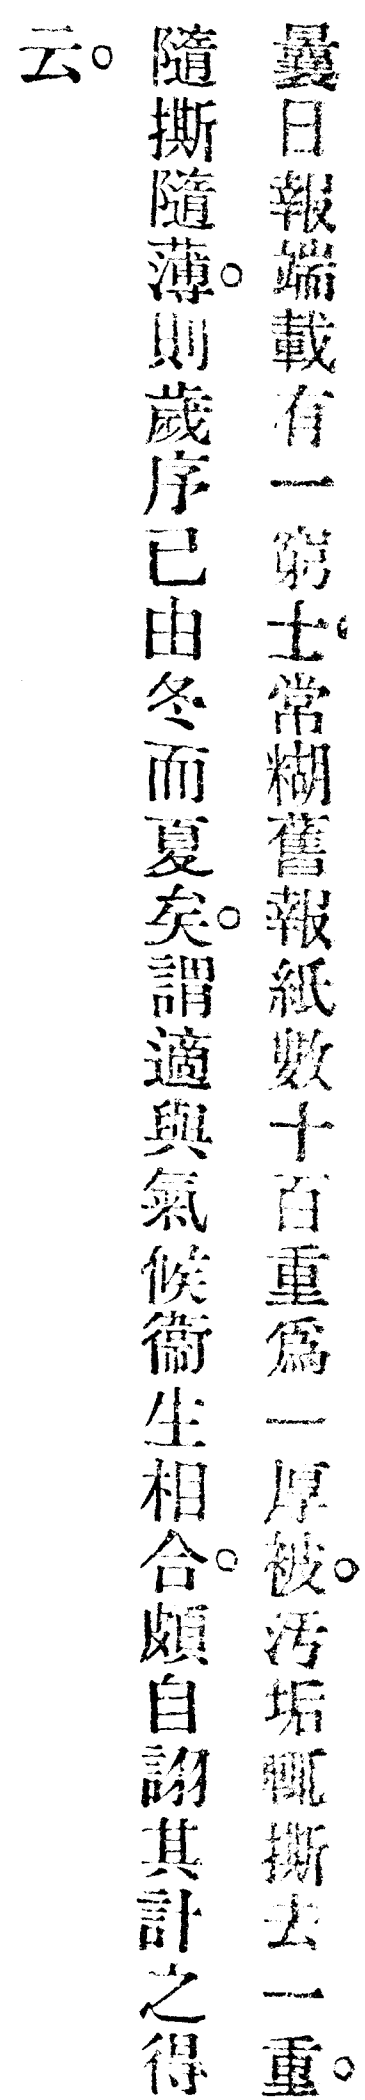 曩日報端載有一窮士。常糊舊報紙數十百重爲一厚被。汚垢輒撕去一重。
隨撕隨薄。則歲序已由冬而夏矣。謂適與氣候衞生相合。頗自詡其計之得
云。